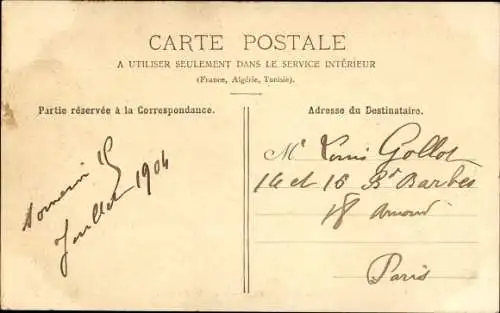 CARTE POSTALE
A UTILISER SEULEMENT DANS LE SERVICE INTÉRIEUR
(France, Algérie, Tunisie).
Partie réservée à la Correspondance.
Juillet 1904
Adresse du Destinataire.
Mr Louis Gollot
14 et 16 Bd Barbes
18
Paris